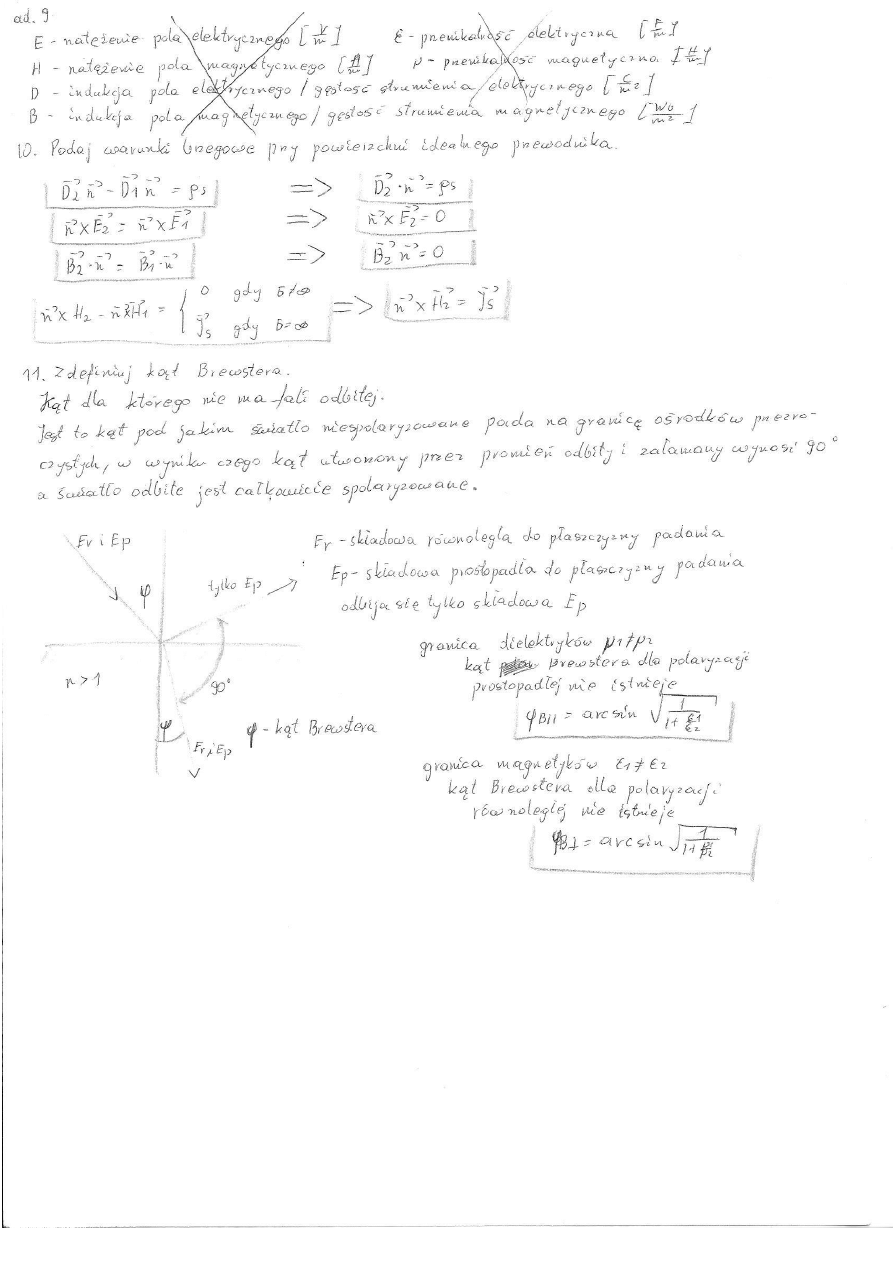 ad. 9
E - natężenie pola elektrycznego [V/m]   ε - przenikalność elektryczna [F/m]
H - natężenie pola magnetycznego [A/m]   μ - przenikalność magnetyczna. [H/m]
D - indukcja pola elektrycznego / gęstość strumienia elektrycznego [C/m²]
B - indukcja pola magnetycznego / gęstość strumienia magnetycznego [Wb/m²]
10. Podaj warunki brzegowe przy powierzchni idealnego przewodnika.
D⃗2 n⃗ - D⃗1 n⃗ = ρs => D⃗2 · n⃗ = ρs
n⃗ × E⃗2 = n⃗ × E⃗1 => n⃗ × E⃗2 = 0
B⃗2 · n⃗ = B⃗1 · n⃗ => B⃗2 n⃗ = 0
n⃗ × H2 - n⃗ × H⃗1 = { 0 gdy σ ≠ ∞
J⃗s gdy σ = ∞ => n⃗ × H⃗2 = J⃗s
11. Zdefiniuj kąt Brewstera.
Kąt dla którego nie ma fali odbitej.
Jest to kąt pod jakim światło niespolaryzowane pada na granicę ośrodków przezro-
czystych, w wyniku czego kąt utworzony przez promień odbity i załamany wynosi 90°
a światło odbite jest całkowicie spolaryzowane.
Er i Ep
φ
tylko Ep
90°
n > 1
φ
Er i Ep
φ - kąt Brewstera
Er - składowa równoległa do płaszczyzny padania
Ep - składowa prostopadła do płaszczyzny padania
odbija się tylko składowa Ep
granica dielektryków μ1≠μ2
kąt Brewstera dla polaryzacji
prostopadłej nie istnieje
φB|| = arcsin √(1/(1+ε1/ε2))
granica magnetyków ε1 ≠ ε2
kąt Brewstera dla polaryzacji
równoległej nie istnieje
φB⊥ = arcsin √(1/(1+μ1/μ2))